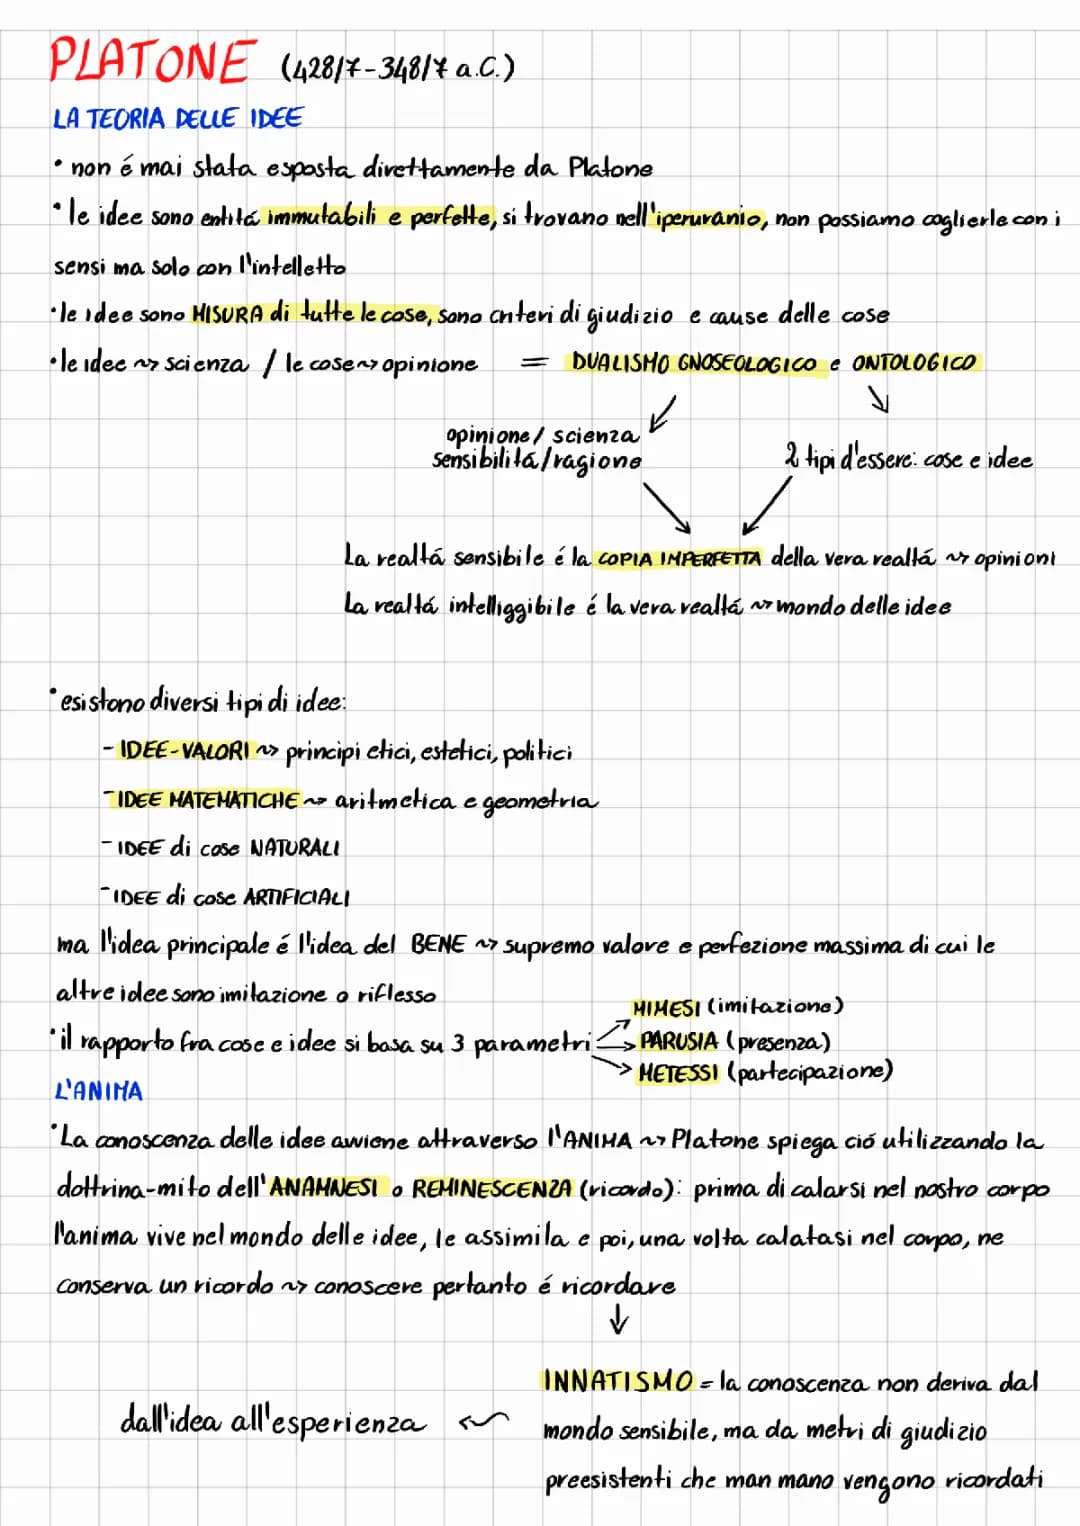 PLATONE (428/7-348/7 a.C.)
LA TEORIA DELLE IDEE
• non é mai stata esposta direttamente da Platone
• le idee sono entitá immutabili e perfette, si trovano nell'iperuranio, non possiamo coglierle con i
sensi ma solo con l'intelletto
• le idee sono MISURA di tutte le cose, sono criteri di giudizio e cause delle cose
• le idee ~> scienza / le cose ~> opinione = DUALISMO GNOSEOLOGICO e ONTOLOGICO
opinione/ scienza
sensibilitá/ragione
2 tipi d'essere: cose e idee
La realtá sensibile é la COPIA IMPERFETTA della vera realtá ~> opinioni
La realtá intelliggibile é la vera realtá ~> mondo delle idee
• esistono diversi tipi di idee:
- IDEE-VALORI ~> principi etici, estetici, politici
- IDEE MATEMATICHE ~> aritmetica e geometria
- IDEE di cose NATURALI
- IDEE di cose ARTIFICIALI
ma l'idea principale é l'idea del BENE ~> supremo valore e perfezione massima di cui le
altre idee sono imitazione o riflesso
• il rapporto fra cose e idee si basa su 3 parametri
MIMESI (imitazione)
PARUSIA (presenza)
METESSI (partecipazione)
L'ANIMA
• La conoscenza delle idee avviene attraverso l'ANIMA ~> Platone spiega ció utilizzando la
dottrina-mito dell'ANAMNESI o REMINESCENZA (ricordo): prima di calarsi nel nostro corpo
l'anima vive nel mondo delle idee, le assimila e poi, una volta calatasi nel corpo, ne
conserva un ricordo ~> conoscere pertanto é ricordare
INNATISMO = la conoscenza non deriva dal
dall'idea all'esperienza
mondo sensibile, ma da metri di giudizio
preesistenti che man mano vengono ricordati